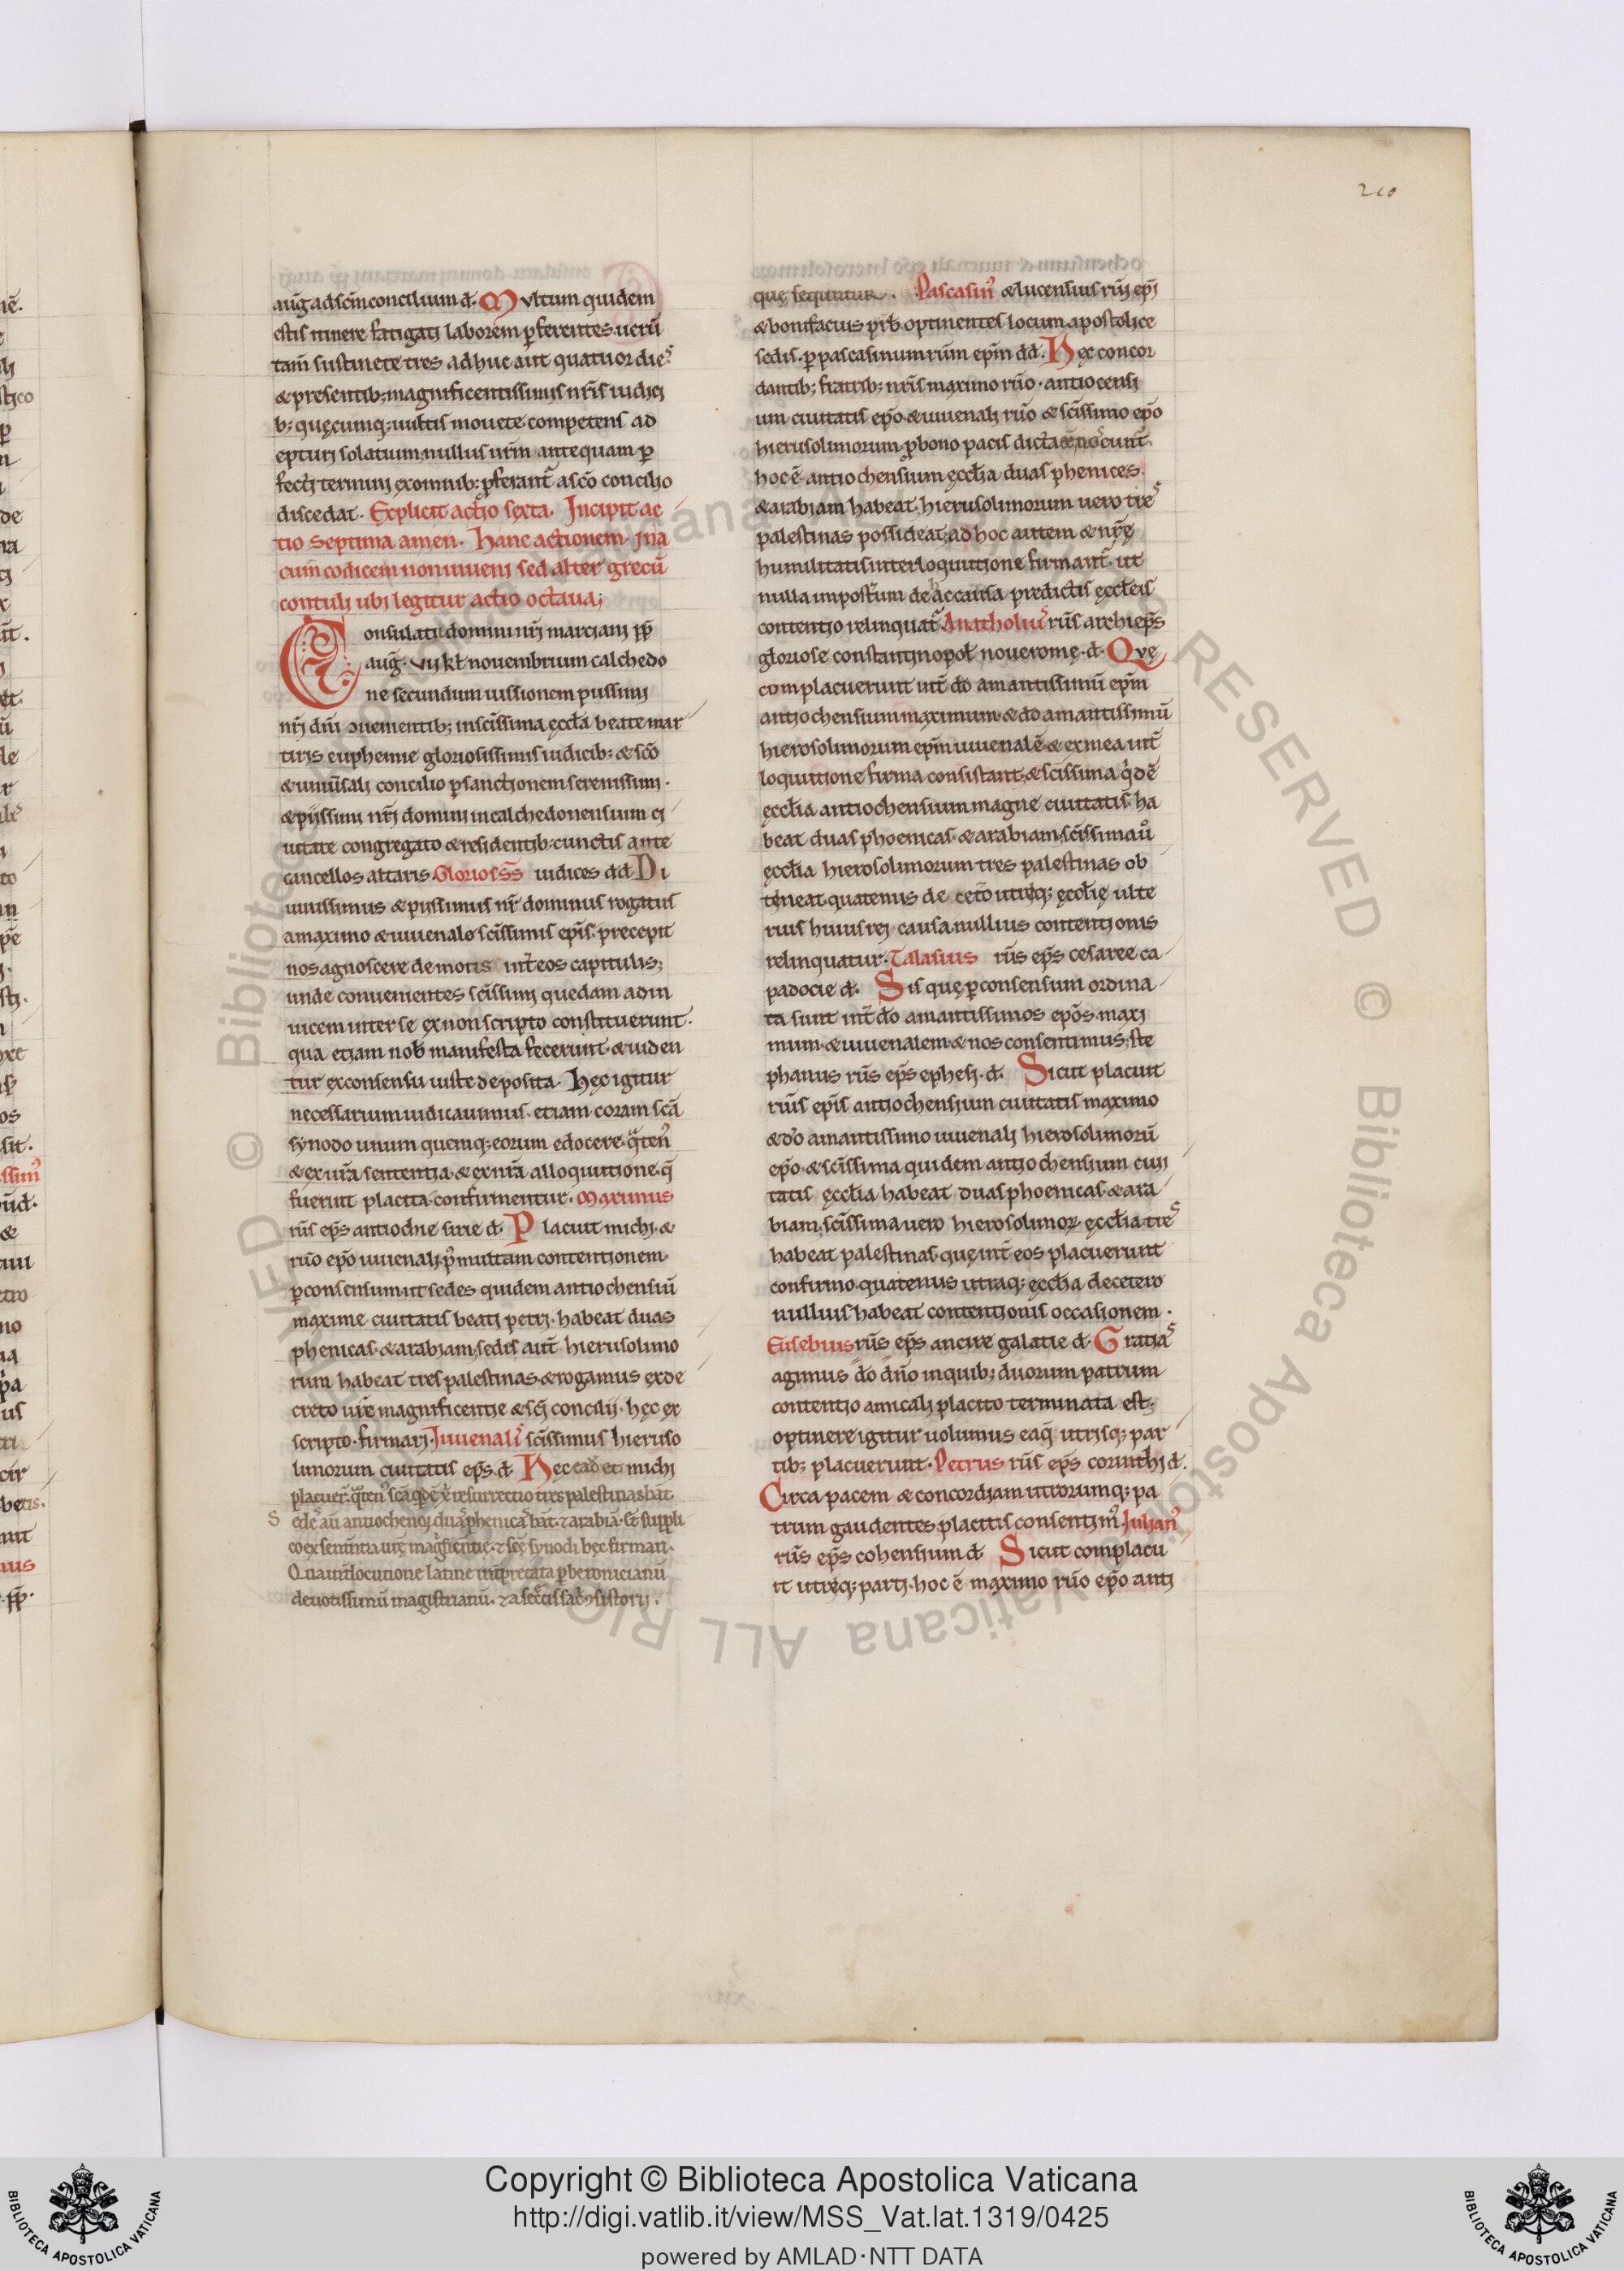 210
aug̃ ad sc̃m concilium d̵. Multum quidem
estis itinere fatigati laborem ꝑferentes. uerũ
tam̃ sustinete tres adhuc aut quatuor dies
& presentib; magnificentissimis nr̃is iudici
b; quęcumq; uultis mouete competens ad
epturi solatium. nullus ur̃m antequam ꝑ
fecti termini ex omnib; ꝓferant̃ a sc̃o concilio
discedat. Explicit actio sexta. Incipit ac
tio septima amen. Hanc actionem in a
cum̃ codicem non inueni sed alter grecũ
contuli ubi legitur actio octaua;
Consulatu domini nr̃i marciani p̄p̄
aug̃. vij kł nouembrium calchedo
ne secundum iussionem piissimi
nr̃i dñi conuenientib; in sc̃issima ęccła beate mar
tiris euphemie gloriosissimis iudicib; & sc̃o
& uniuersali concilio ꝑ sanctionem serenissimi.
& pijssimi nr̃i domini in calchedonensium ci
uitate congregato & residentib; cunctis ante
cancellos altaris. Glorioss̃ iudices dd̵. Di
uinissimus & piissimus nr̃ dominus rogatus
a maximo & iuuenale sc̃issimis ep̃is. precepit
nos agnoscere de motis int̃ eos capitulis;
unde conuenientes sc̃issimi quedam ad in
uicem inter se ex non scripto constituerunt.
qua etiam nob̵ manifesta fecerunt. & uiden
tur ex consensu iuste deposita. Hęc igitur
necessarium iudicauimus. etiam coram sc̃a
synodo unum quemq; eorum edocere. q̃ten̾
& ex ur̃a sententia. & ex nr̃a alloquutione. q̃
fuerint placita. confirmentur. Maximus
rũs ep̃s antiochie sirie d̵. Placuit michi. &
rũo ep̃o iuuenali. p̾ multam contentionem.
ꝑ consensum. ut sedes quidem antiochensiũ
maxime ciuitatis beati petri. habeat duas
phenicas. & arabiam. sedis aut̃ hierusolimo
rum habeat tres palestinas. & rogamus ex de
creto ur̃e magnificentie & sc̃i concilij. hęc ex
scripto. firmari. Iuuenalis sc̃issimus hieruso
limorum ciuitatis ep̃s. d̵. Hęc eadẽ et michi
placuer̃. q̃ten̾ sc̃a q̾dẽ xp̃i resurrectio tres palestinas hãt
S edes̃ aũ antiochenoꝝ duas phenicas hãt. ⁊ arabiã. Et suppli
co ex sententia ur̃ę magñficentię. ⁊ sc̃ę synodi hęc firmari.
Qua int̃locutione latine int̃pretata ꝑ beronicianũ
deuotissimũ magistrianũ. ⁊ a secretis sacri ↄsistorij.
quę sequntur. Pascasin̾ & lucensius rũi ep̃i
& bonifacius prb̵. optinentes locum apostolice
sedis. ꝑ pascasinum rũm ep̃m dd̵. Hęc concor
dantib; fratrib; nr̃is maximo rũo. antiocensi
um ciuitatis ep̃o. & iuuenali rũo & sc̃issimo ep̃o
hierusolimorum ꝓ bono pacis dicta eẽ noscunt̃.
hoc ẽ antiochensium ęccłia duas phenices.
& arabiam habeat. hierusolimorum uero tres
palestinas possideat; ad hoc autem & nr̃ę
humilitatis interloquutione firmant̃. ut
nulla imposterum de hac causa predictis ęccłeis
contentio relinquat̃. Anatholius rũs archiep̃s
gloriose constantinopoł noue romę. d̵. Quę
complacuerunt int̃ do amantissimũ ep̃m
antiochensium maximum. & do amantissimũ
hierosolimorum ep̃m iuuenalẽ & ex mea int̃
loquutione firma consistant. & sc̃issima q̾dẽ
ęccłia antiochensium magne ciuitatis. ha
beat duas phoenicas. & arabiam. sc̃issima ũo
ęccłia hierosolimorum tres palestinas ob
teneat. quatenus de cet̃o utriq; ęccłię ulte
rius huius rei causa. nullius contentionis
relinquatur. Talasius rũs ep̃s cesaree ca
padocie d̵. Sis quę ꝑ consensum ordina
ta sunt int̃ do amantissimos ep̃os. maxi
mum. & iuuenalem. & nos consentimus; ste
phanus rũs ep̃s ephesi. d̵. Sicut placuit
rũis ep̃is antiochensium ciuitatis maximo
& do amantissimo iuuenali hierosolimorũ
ep̃o. & sc̃issima quidem antiochensium ciui
tatis ęccłia habeat duas phoenicas. & ara
biam. sc̃issima uero hierosolimoꝝ. ęccłia tres
habeat palestinas. quę int̃ eos placuerunt
confirmo. quatenus utraq; ęccłia de cetero
nullius habeat contentionis occasionem.
Eusebius rũs ep̃s ancire galatie d̵. Gratias
agimus do dño in quib; duorum patrum
contentio amicali placito terminata est.
optinere igitur uolumus ea q̃ utrisq; par
tib; placuerunt. Petrus rũs ep̃s corinthi d̵.
Circa pacem & concordiam utrorumq; pa
trum gaudentes. placitis consentim̾. Iulian̾
rũs ep̃s cohensium d̵. Sicut complacu
it utriq; parti. hoc ẽ maximo rũo ep̃o anti
Copyright © Biblioteca Apostolica Vaticana
http://digi.vatlib.it/view/MSS_Vat.lat.1319/0425
powered by AMLAD·NTT DATA